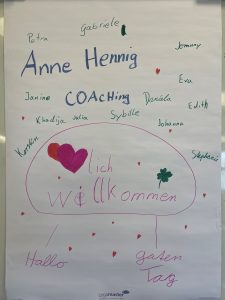 Gabriele
Petra
Jenny
Anne Hennig
Eva
Janine
COACHING
Daniela
Edith
Khadija
Julia
Sybille
Johanna
Kerstin
Stephanie
lich
willkommen
Hallo
guten
Tag